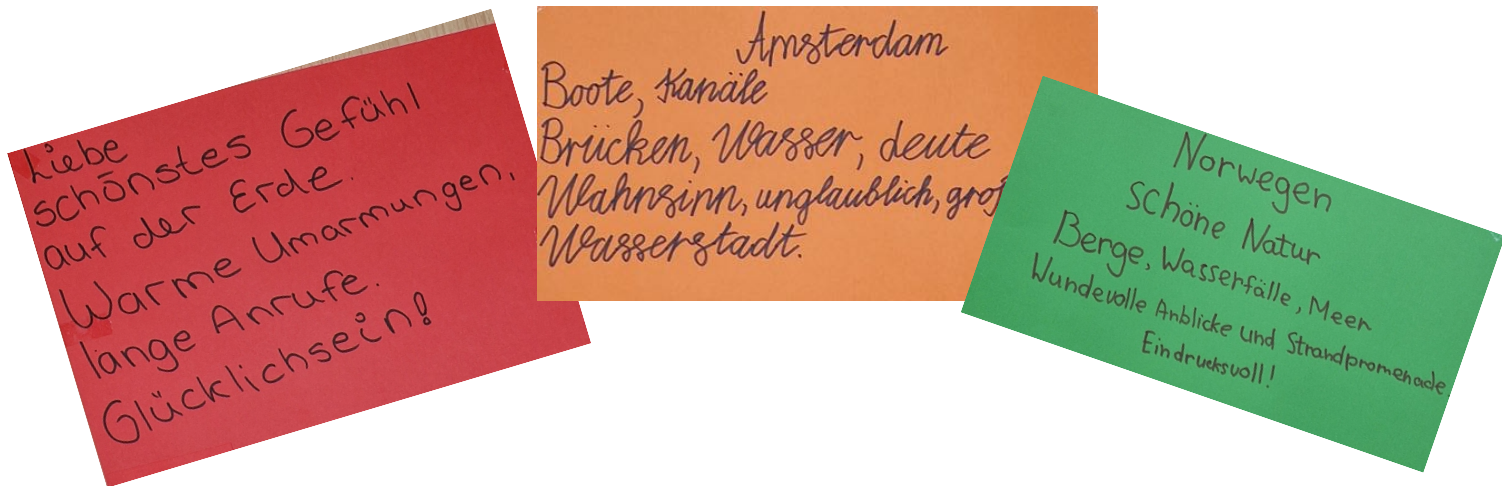 Liebe
schönstes Gefühl
auf der Erde.
Warme Umarmungen,
lange Anrufe.
Glücklichsein!
Amsterdam
Boote, Kanäle
Brücken, Wasser, deute
Wahnsinn, unglaublich,
Wasserstadt.
Norwegen
schöne Natur
Berge, Wasserfälle, Meer
Wundevolle Anblicke und Strandpromenade.
Eindrucksvoll!